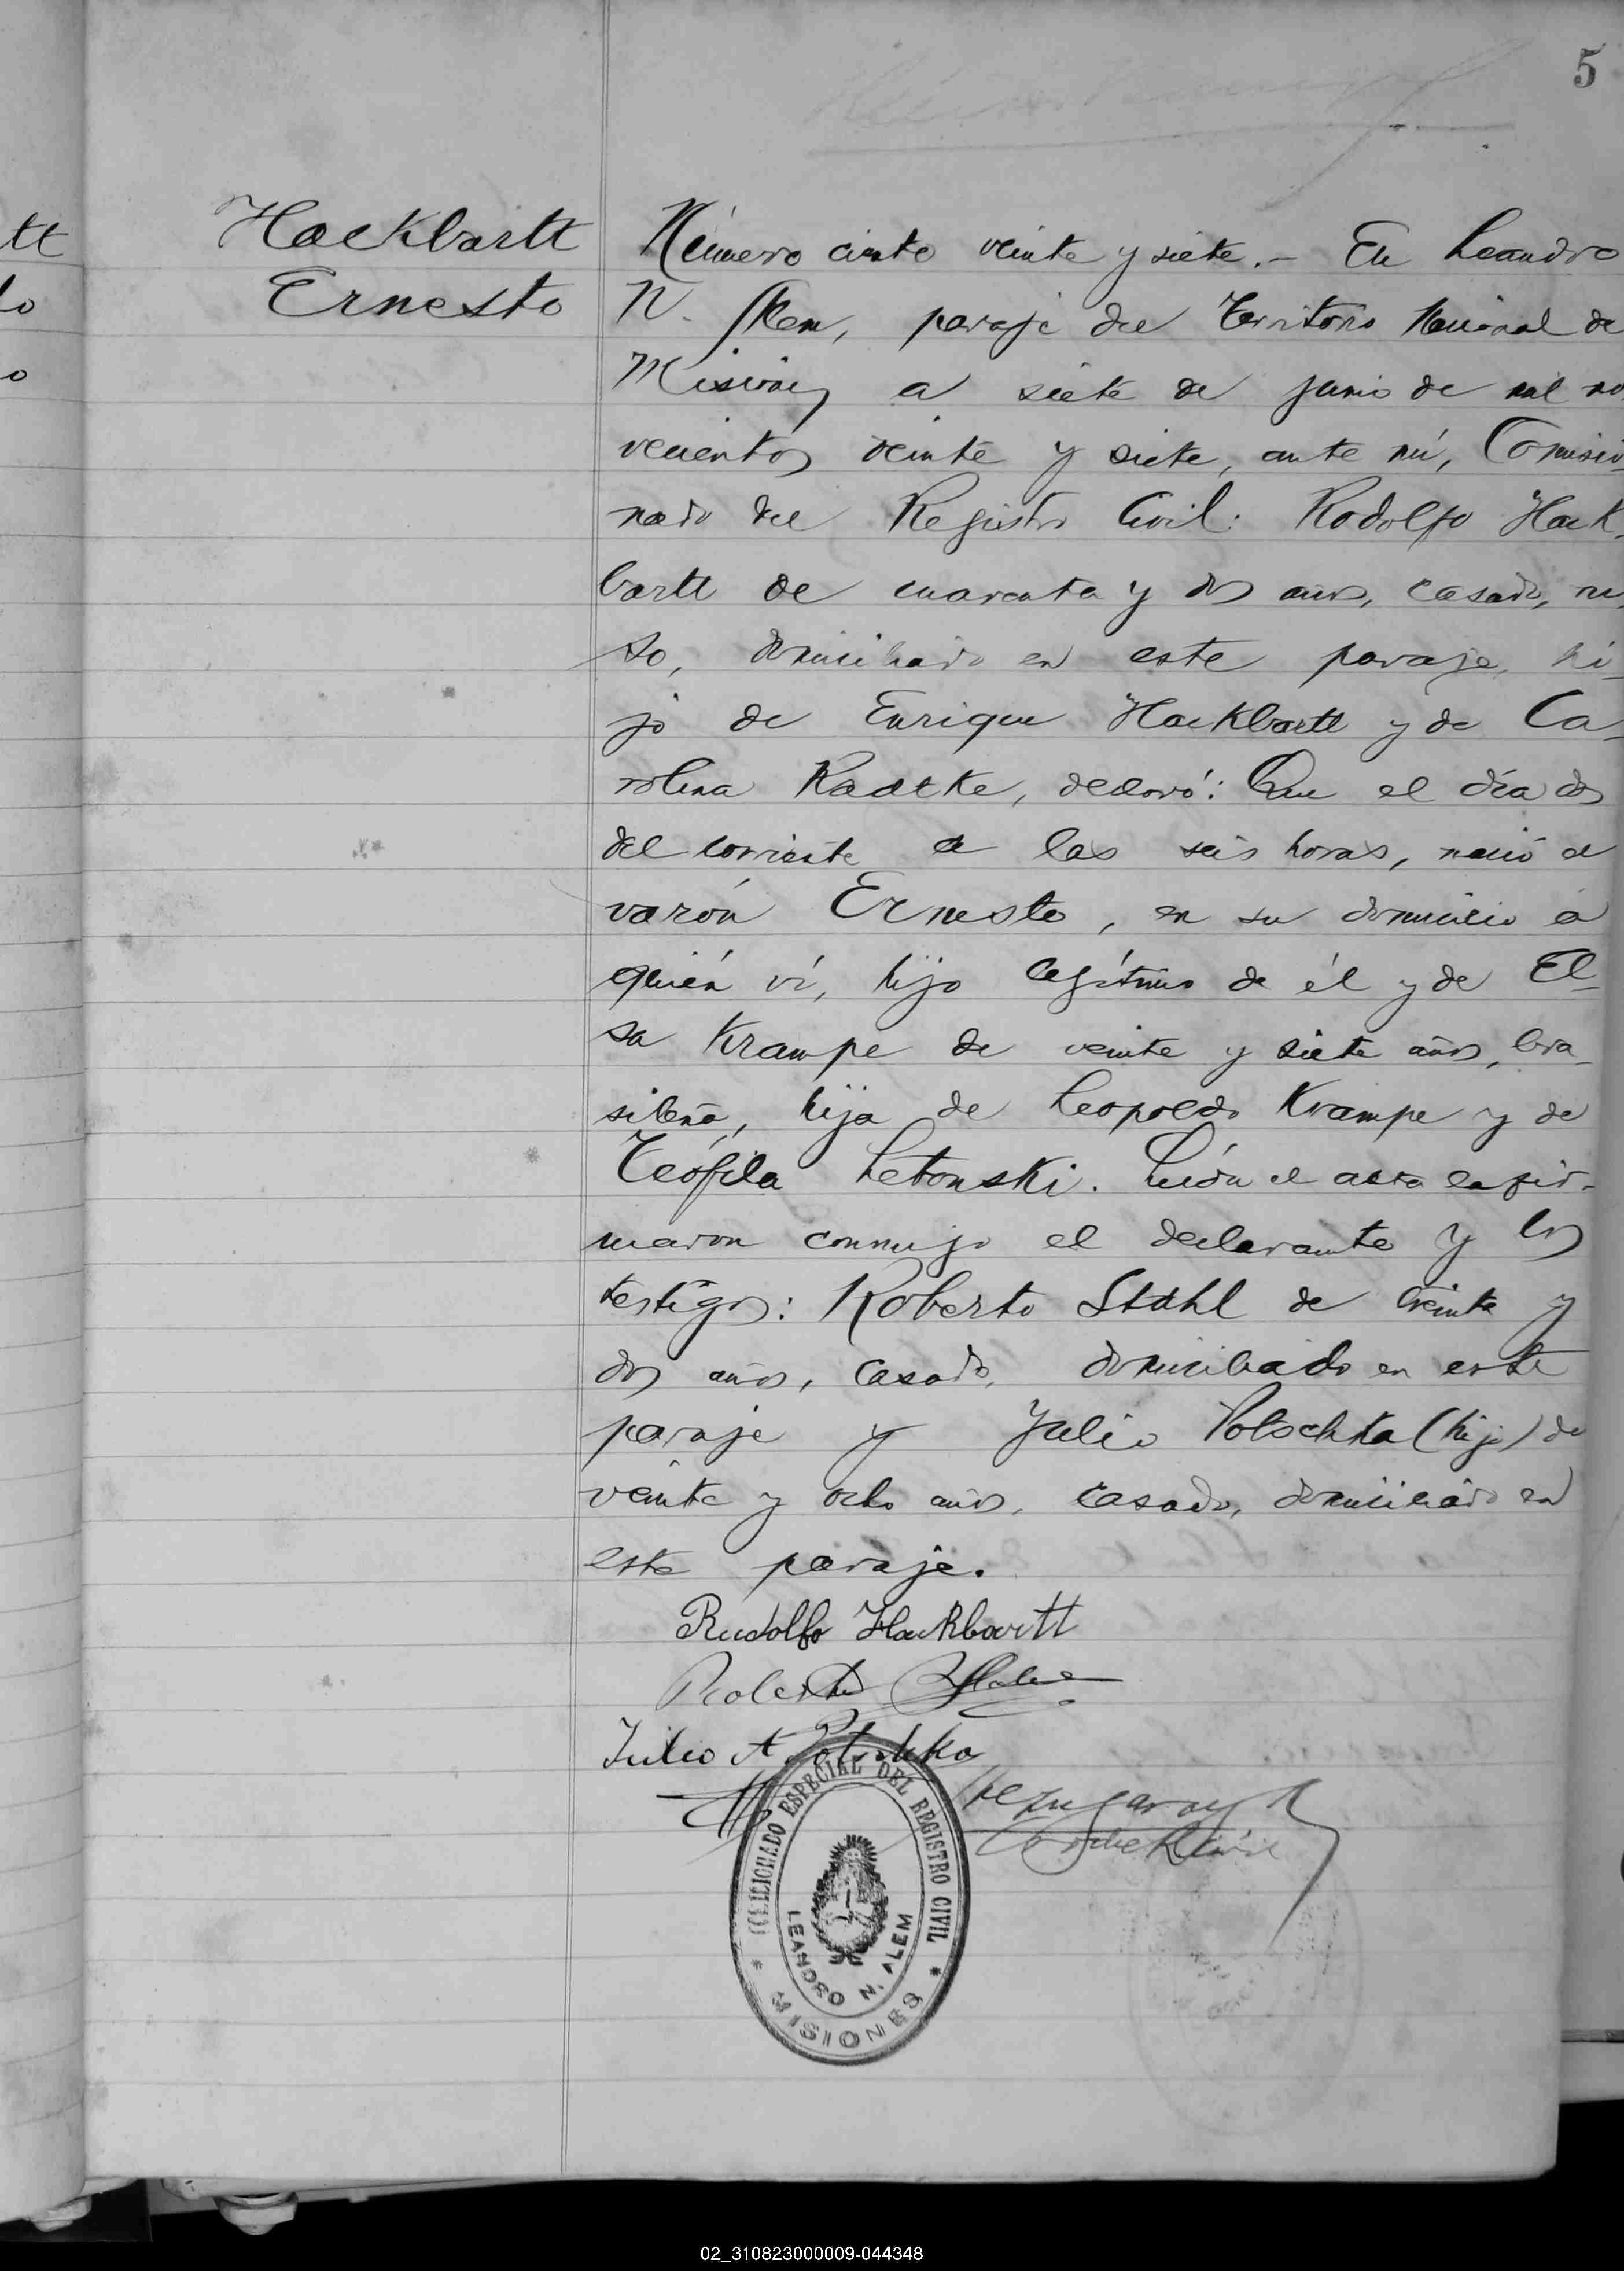 5
tt
lo
o
Hackbartt
Ernesto
Número ciento veinte y siete.- En Leandro
N. Alem, paraje del Territorio Nacional de
Misiones a siete de junio de mil no-
vecientos veinte y siete, ante mí, Comisio-
nado del Registro Civil: Rodolfo Hack-
bartt de cuarenta y dos años, casado, ru
so, domiciliado en este paraje, hi-
jo de Enrique Hackbartt y de Ca-
rolina Radtke, declaró: Que el día dos
del corriente a las seis horas, nació el
varón Ernesto, en su domicilio a
quién ví, hijo legítimo de él y de El-
sa Krampe de veinte y siete años, bra-
sileña, hija de Leopoldo Krampe y de
Teófila Letonski. Leída el acta la fir-
maron conmigo el declarante y los
testigos: Roberto Stahl de treinta y
dos años, casado, domiciliado en este
paraje y Julio Potschka (hijo) de
veinte y ocho años, casado, domiciliado en
este paraje.
Rudolfo Hackbartt
Roberto Stahl
Julio A Potschka
ESPECIAL DEL REGISTRO CIVIL
LEANDRO N. ALEM
* MISIONES *
02_310823000009-044348